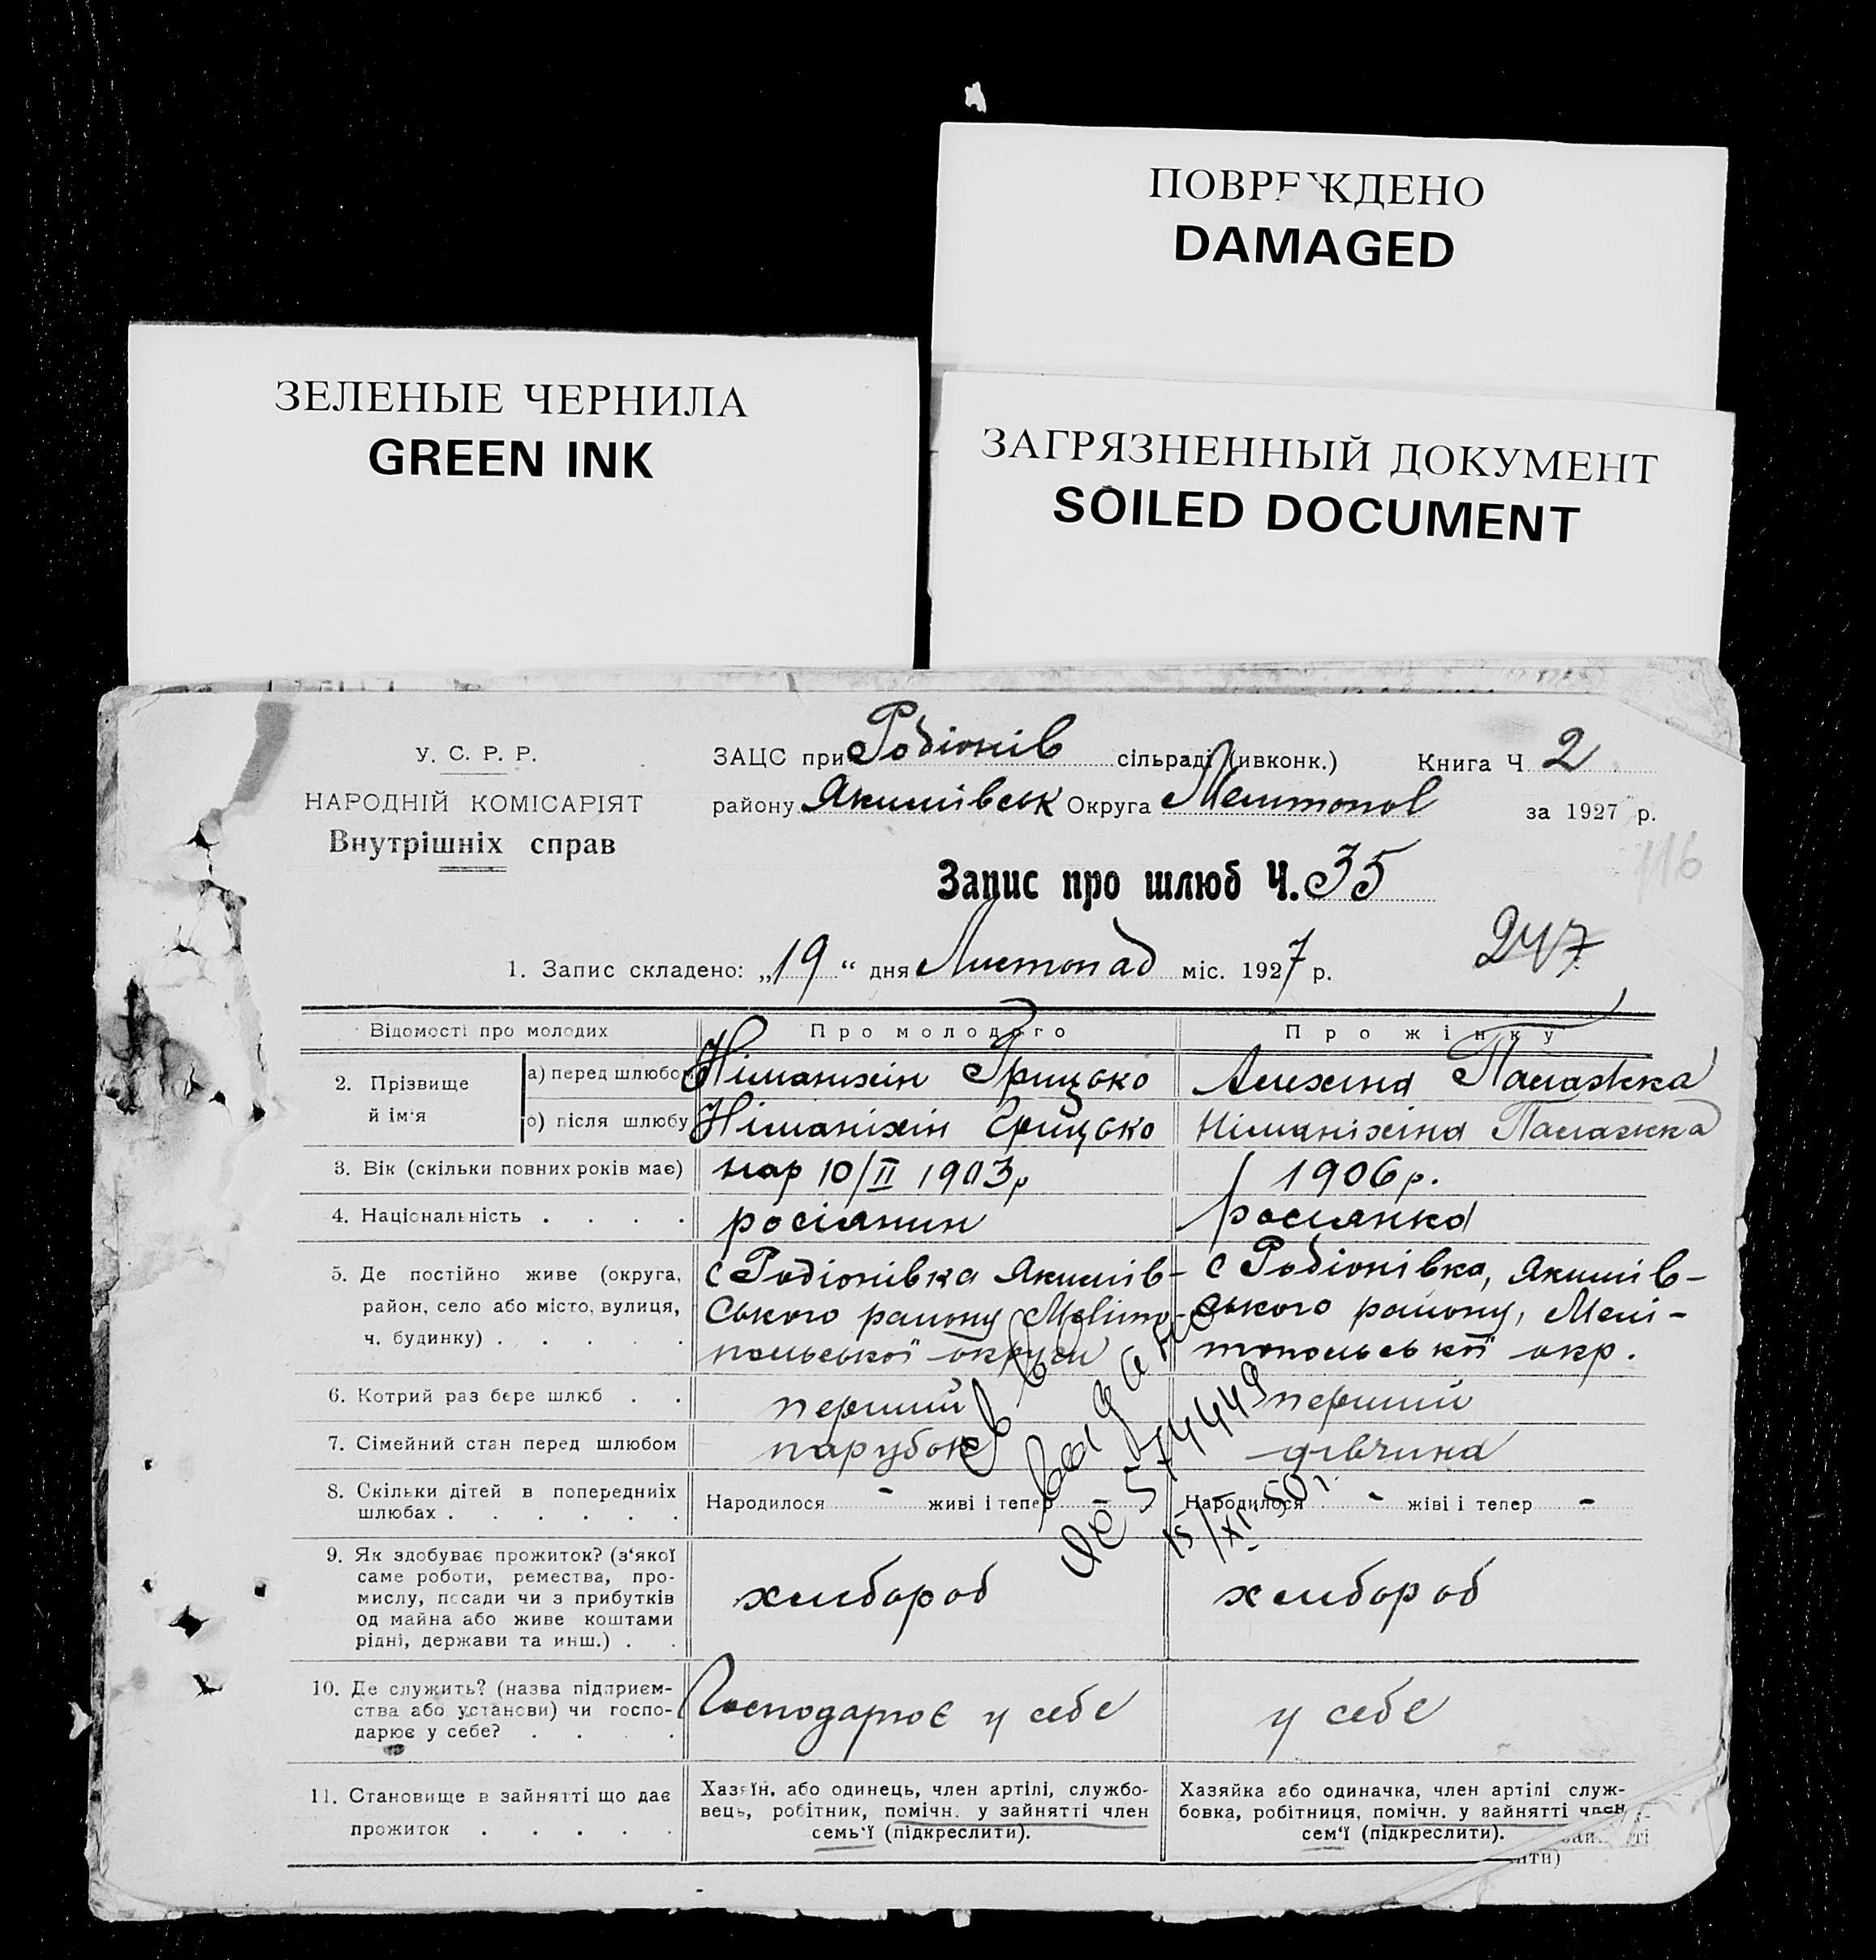 ПОВРЕЖДЕНО
DAMAGED
ЗЕЛЕНЫЕ ЧЕРНИЛА
GREEN INK
ЗАГРЯЗНЕННЫЙ ДОКУМЕНТ
SOILED DOCUMENT
У. С. Р. Р.
НАРОДНІЙ КОМІСАРІЯТ
Внутрішніх справ
ЗАЦС при Родіонів сільраді (ивконк.) Книга Ч 2
району Якимівськ Округа Мелітопол за 1927 р.
116
Запис про шлюб Ч. 35
247
1. Запис складено: „19“ дня Листопад міс. 1927 р.
Відомості про молодих Про молодого Про жінку
2. Прізвище й ім'я
а) перед шлюбом Грицько Палажка
б) після шлюбу Грицько Палажка
3. Вік (скільки повних років має) нар 10/II 1903р 1906р.
4. Національність . . . . росіянин росіянка
5. Де постійно живе (округа, с Родіонівка Якимів- с Родіонівка, Якимів-
район, село або місто, вулиця, ського району Меліто- ського району, Мелі-
ч. будинку) . . . . . польської округи топольської окр.
6. Котрий раз бере шлюб . . перший перший
7. Сімейний стан перед шлюбом парубок дівчина
8. Скільки дітей в попередниіх
шлюбах . . . . . . Народилося - живі і тепер - Народилося - жіві і тепер -
№ 574449
15/XI-50г.
9. Як здобуває прожиток? (з'якої
саме роботи, ремества, про-
мислу, посади чи з прибутків
од майна або живе коштами
рідні, держави та инш.) . . хлібороб хлібороб
10. Де служить? (назва підприєм-
ства або установи) чи госпо-
дарює у себе? . . . . Господарює у себе у себе
11. Становище в зайнятті що дає
прожиток . . . . .
Хазяїн, або одинець, член артілі, службо-
вець, робітник, помічн. у зайнятті член
семь'ї (підкреслити).
Хазяйка або одиначка, член артілі служ-
бовка, робітниця, помічн. у зайнятті член
сем'ї (підкреслити).